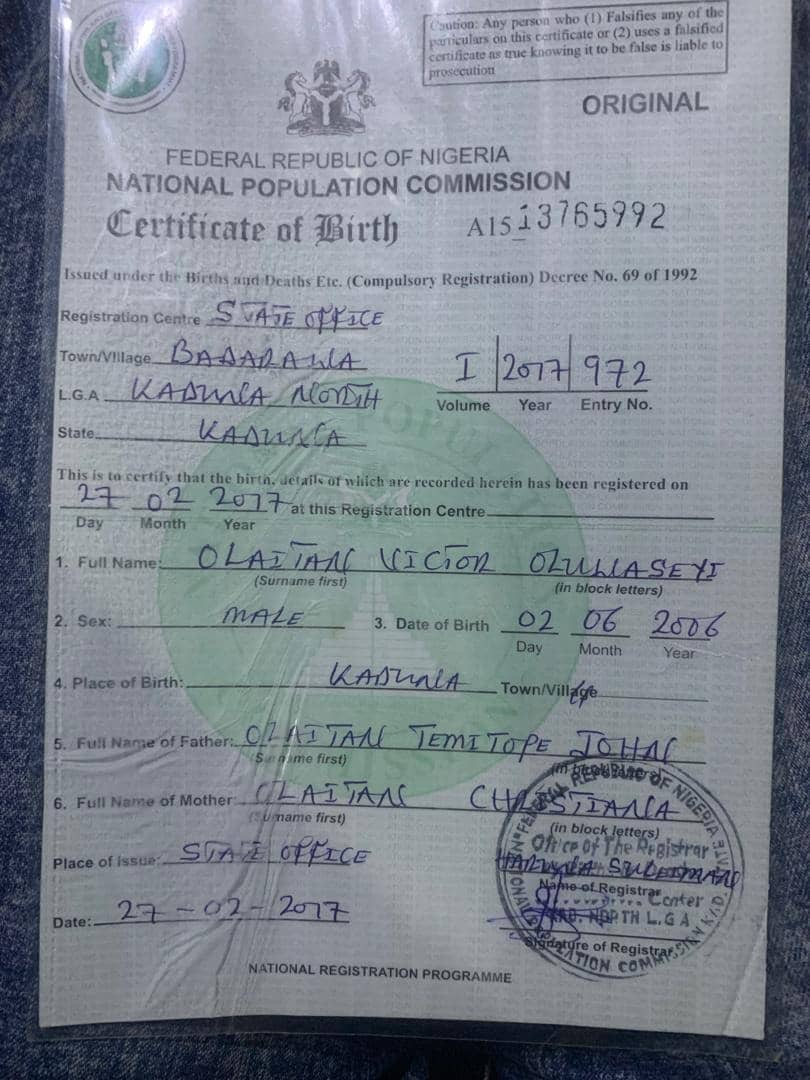 Caution: Any person who (1) Falsifies any of the
particulars on this certificate or (2) uses a falsified
certificate as true knowing it to be false is liable to
prosecution
ORIGINAL
FEDERAL REPUBLIC OF NIGERIA
NATIONAL POPULATION COMMISSION
Certificate of Birth A1513765992
Issued under the Births and Deaths Etc. (Compulsory Registration) Decree No. 69 of 1992
Registration Centre STATE OFFICE
Town/Village BADARAWA
I 2017 972
L.G.A KADUNA NORTH
Volume Year Entry No.
State KADUNA
This is to certify that the birth, details of which are recorded herein has been registered on
27 02 2017 at this Registration Centre
Day Month Year
1. Full Name: OLAITAN VICTOR OLUWASEYI
(Surname first) (in block letters)
2. Sex: MALE 3. Date of Birth 02 06 2006
Day Month Year
4. Place of Birth: KADUNA Town/Village
5. Full Name of Father: OLAITAN TEMITOPE JOHN
(Surname first) (in block letters)
6. Full Name of Mother: OLAITAN CHRISTIANA
(Surname first) (in block letters)
Office of The Registrar
Place of Issue: STATE OFFICE
Name of Registrar
Center
Date: 27-02-2017
KAD. NORTH L.G.A
Signature of Registrar
NATIONAL REGISTRATION PROGRAMME